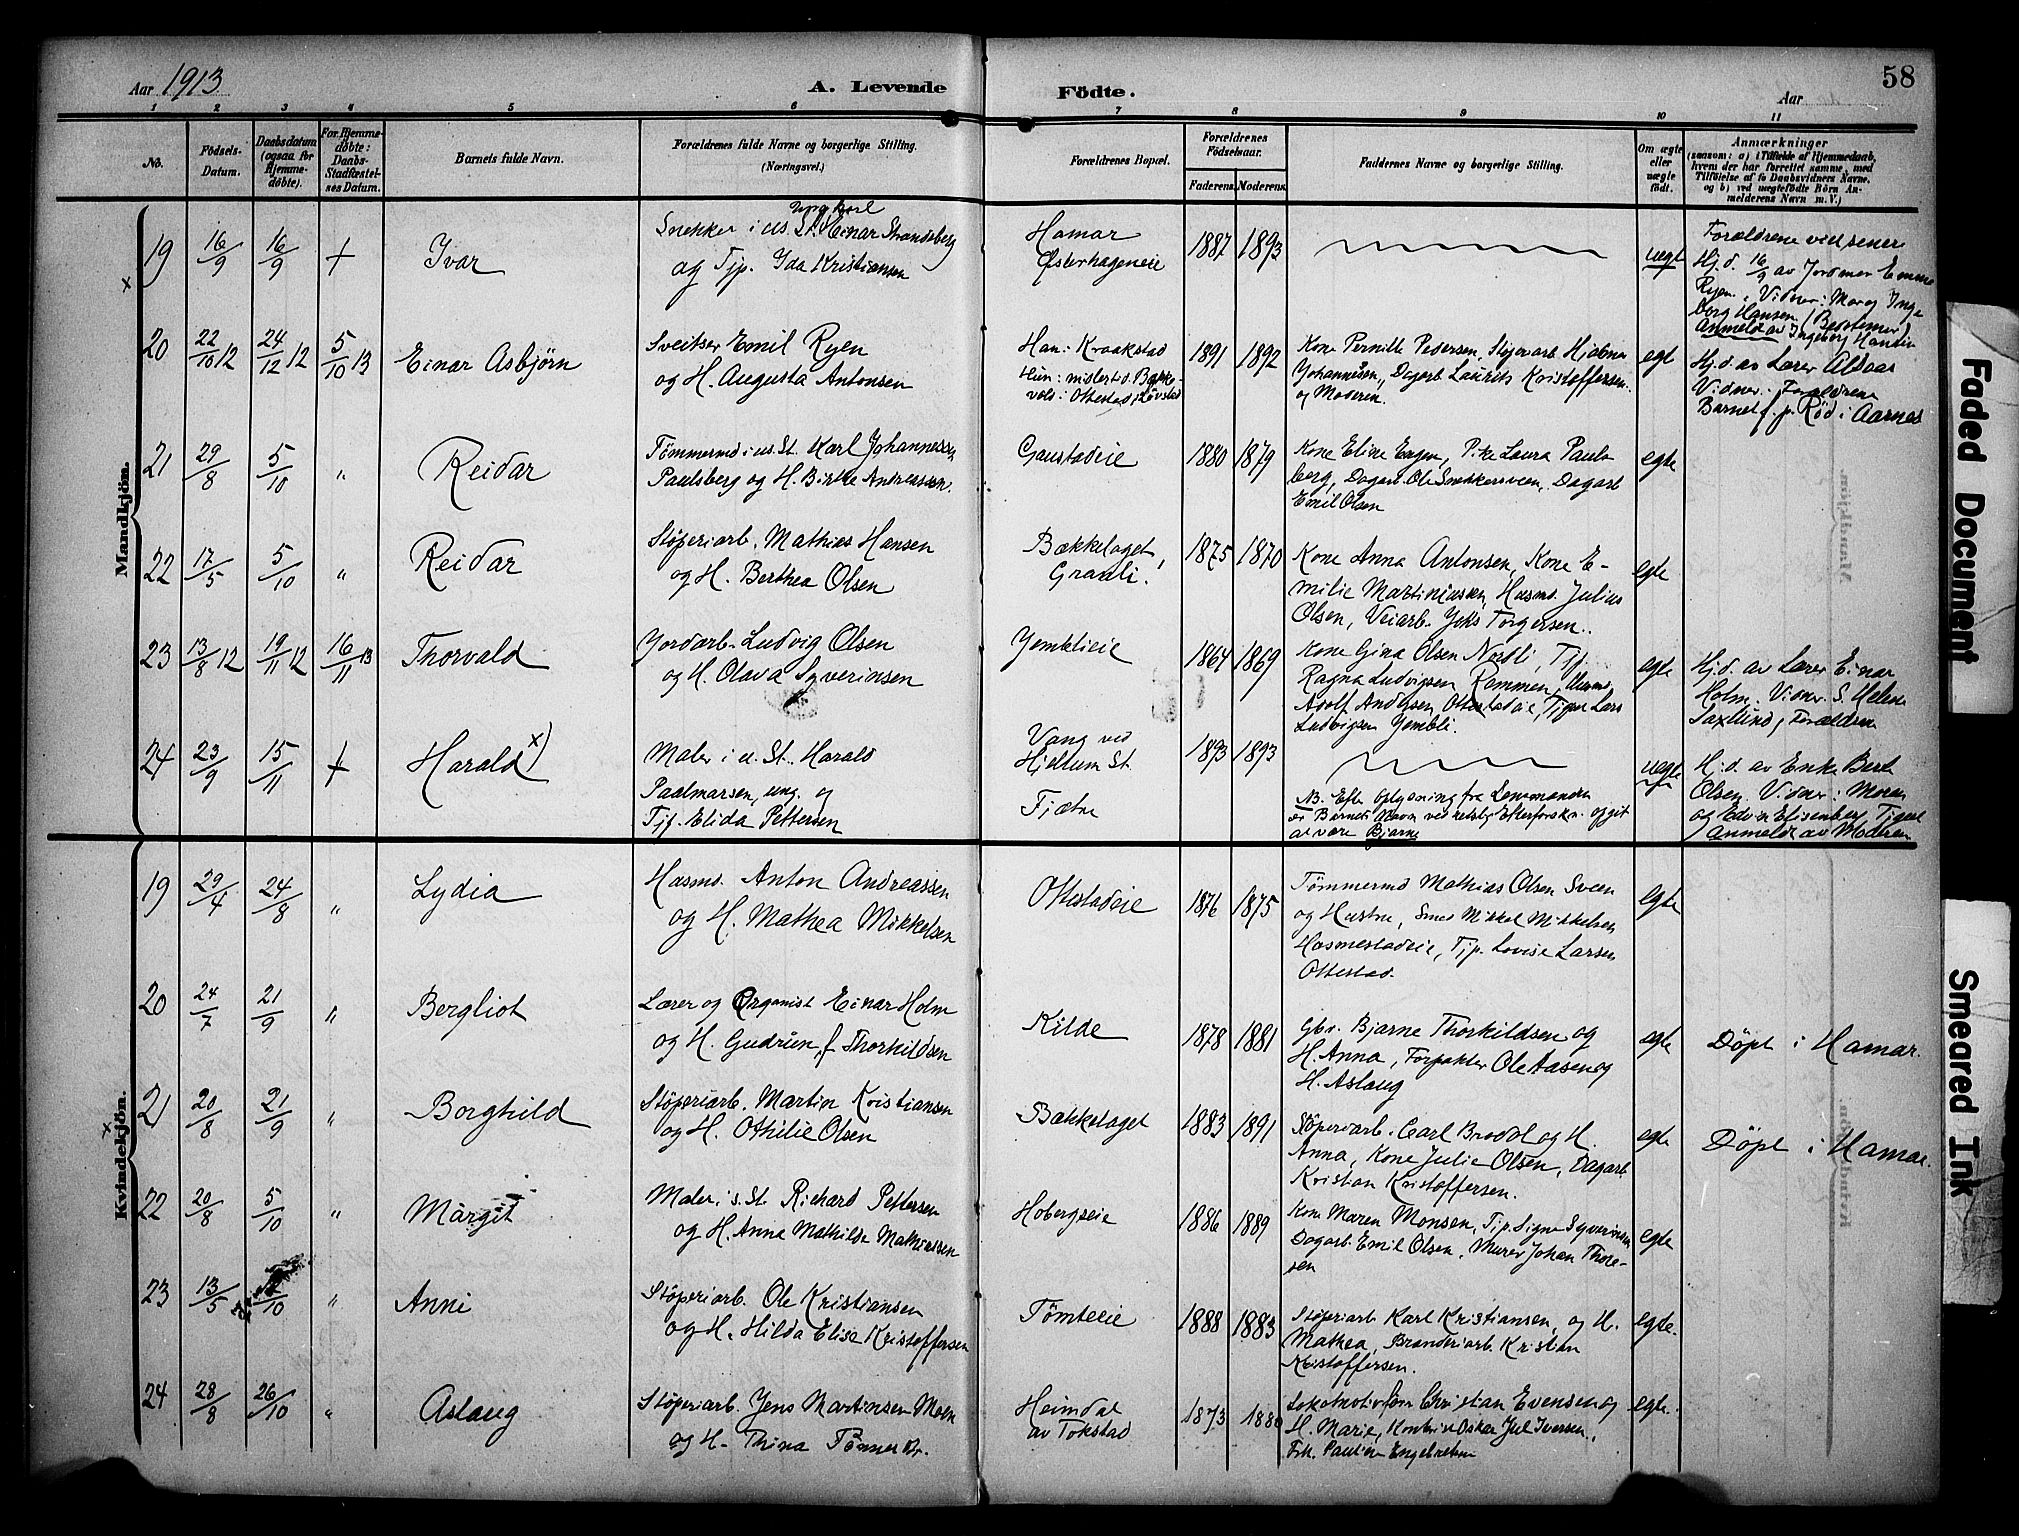 Aar 1913
A. Levende Födte.
Aar
58
1 2 3 4 5 6 7 8 9 10 11
No.
Födsels-
Datum.
Daabsdatum
(ogsaa för
Hjemme-
döbte).
For Hjemme-
döbte:
Daabs-
Stadfæstel-
ses Datum.
Barnets fulde Navn.
Forældrenes fulde Navne og borgerlige Stilling.
(Næringsvei.)
Forældrenes Bopæl.
Forældrenes
Födselsaar.
Faderens. Moderens.
Faddernes Navne og borgerlige Stilling.
Om ægte
eller
uægte
født.
Anmærkninger
(saasom: a) i Tilfælde af Hjemmedaab,
hvem der har forrettet samme, med
Tilföielse af to Daabsvidners Navne.
og b) ved uægtefödte Börn An-
melderens Navn m. V.)
Mandkjön.
19 16/9 16/9 + Ivar
ungkarl
Snekker i us. St. Einar Strandsberg
og Tjp. Ida Kristiansen
Hamar
Østerhageneie
1887 1893
uegt
Forældrene vid senere
Hj.d. 16/9 av Jordmor Emma
Ryen. Vidner: Mor og Inge
borg Hansen (Bestemor)
Anmeldt av Ingeborg Hansen
20 22/10 12 24/12 12 5/10 13 Einar Asbjörn
Sveitser Emil Ryen
og H. Augusta Antonsen
Han: Kraakstad
Hun: midlertid. Bække-
vold i Ottestad, Løvstad
1891 1892
Kone Pernille Pedersen, Støperiarb Hjalmar
Johannesen, Dagarb Laurits Kristoffersen
og Moderen.
egt
Hj.d. av Lærer Alsaar
Vidner: Forældrene
Barnet f. p. Rød i Aarnes
21 29/8 5/10 " Reidar
Tømmermd i us. St. Karl Johannessen
Paulsberg og H. Birthe Andreassen.
Gaustadeie
1880 1879
Kone Eline Engen, Pike Laura Pauls
berg, Dagarb Ole Snekkersveen, Dagarb
Emil Olsen
egte
22 17/5 5/10 " Reidar
Støperiarb. Mathias Hansen
og H. Berthea Olsen
Bækkelaget,
Graali.
1875 1870
Kone Anna Antonsen, Kone E-
milie Martiniussen, Husmd. Julius
Olsen, Veiarb. Joks Torgersen.
egte
23 13/8 12 19/11 12 16/11 13 Thorvald
Jordarb. Ludvig Olsen
og H. Olava Syverinsen
Jemblieie
1864 1869
Kone Gina Olsen Nordli, Tjp.
Ragna Ludvigsen Rommen, Husmd
Adolf Andersen Ottestadeie, Tjgut Lars
Ludvigsen Jembli.
egte
Hj.d. av Lærer Einar
Holm. Vidner. S. Helene
Saxlund, Forældren
24 23/9 15/11 + Harald x)
Maler i u. St. Harald
Paalmarsen, ung. og
Tjp. Elida Pettersen
Vang ved
Hjellum St.
Fjetre
1893 1893
NB. Efter Oplysning fra Lensmanden
er Barnets Navn ved retslig Efterforskn. opgit
at være Bjarne
uegte
Hj.d. av Enke Berte
Olsen Vidner: Moren
og Edvin Elisenberg Tjgut
Anmeldt av Moderen
Kvindekjön.
19 29/4 24/8 " Lydia
Husmd. Anton Andreassen
og H. Mathea Mikkelsen
Ottestadeie
1876 1875
Tömmermd Mathias Olsen Sveen
og Hustru, Smed Mikkel Mikkelsen
Husmestadeie, Tjp. Lovise Larsen
Ottestad.
egte
20 24/7 21/9 " Bergliot
Lærer og Organist Einar Holm
og H. Gudrun, f. Thorkildsen
Kilde
1878 1881
Gbr. Bjarne Thorkildsen og
H. Anna, Forpakter Ole Aasen og
H. Aslaug
egte
Döpt i Hamar.
21 20/8 21/9 " Borghild
Støperiarb. Martin Kristiansen
og H. Othilie Olsen
Bækkelaget
1883 1891
Støperiarb. Carl Brodal og H.
Anna, Kone Julie Olsen, Dagarb.
Kristian Kristoffersen.
egte
Döpt i Hamar.
22 20/8 5/10 " Margit
Maler i s. St. Richard Pettersen
og H. Anna Mathilde Mathiassen
Hobergseie
1886 1889
Kone Maren Monsen, Tjp. Signe Syverinsen
Dagarb. Emil Olsen, Murer Johan Thore-
sen
egte
23 13/5 12/10 " Anni
Støperiarb. Ole Kristiansen
og H. Hilda Elise Kristoffersen
Tömteeie
1888 1883
Støperiarb Karl Kristiansen, og H.
Mathea, Brænderiarb. Kristian
Kristoffersen.
egte.
24 28/8 26/10 " Aslaug
Støperiarb. Jens Martinsen Moen
og H. Thina Tönnerbr.
Heimdal
av Tokstad
1873 1880
Lokomotivförer Christian Evensen og
H. Marie, Kontorist Oskar Jul Iversen,
Frk. Pauline Engebretsen
egte.
Faded Document
Smeared Ink